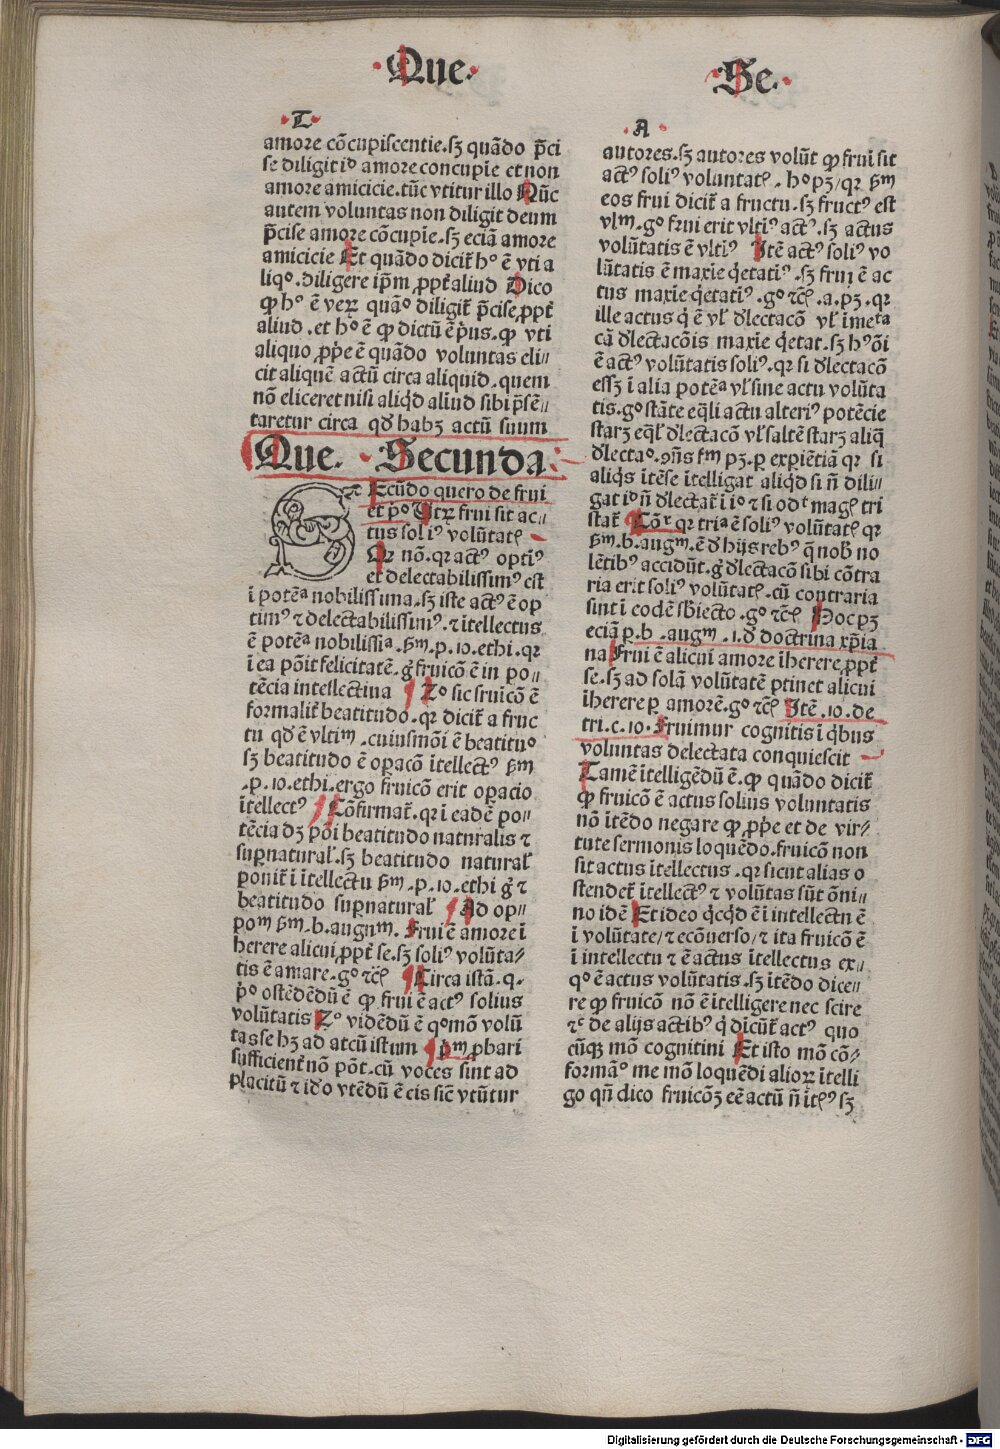 Que.
Se.
T
amore cõcupiscentie.sꝫ quãdo p̃ci
se diligit iᵈ amore concupīe et non
amore amicicie.tũc vtitur illo Nũc
autem voluntas non diligit deum
p̃cise amore cõcupīe.sꝫ eciã amore
amicicie Et quãdo dicit̃ hᵒ ē vti a
liqᵒ.diligere ip̃m ꝓpt̃ aliud Dico
ꝙ hᵒ ē veꝝ quãᵒ diligit̃ p̃cise,ꝓpt̃
aliud.et hᵒ ē ꝙ dictũ ē p̃us.ꝙ vti
aliquo ꝓp̃e ē quãdo voluntas eli
cit aliquē actũ circa aliquid.quem
nõ eliceret nisi aliq̇d aliud sibi p̃sē⸗
taretur circa qð habꝫ actũ suum
Que. Secunda.
SEcũdo quero de frui
et p̃ᵒ Utꝝ frui sit ac⸗
tus soliꝰ volũtatꝭ
Qr nõ.qr actꝰ optiꝰ
et delectabilissimꝰ est
ī potēᵃ nobilissima.sꝫ iste actꝰ ē op
timꝰ ⁊ delectabilissimꝰ.⁊ ītellectus
ē potēᵃ nobilissīᵃ.ẜm.p.10.ethi.qr
ī ea põit felicitatē.g̊ fruicõ ē in po⸗
tēcia intellectiua Zᵒ sic fruicõ ē
formalit̃ beatitudo.qr dicit̃ a fruc
tu qð ē vltiᵐ.cuiusmõi ē beatituᵒ
sꝫ beatitudo ē oꝑacõ ītellectꝰ ẜm
.p.10.ethi.ergo fruicõ erit oꝑacio
ītellectꝰ Cõfirmat̃.qr ī eadē po⸗
tēcia dꝫ põi beatitudo naturalis ⁊
suꝑnatural̃.sꝫ beatitudo natural̃
ponit̃ ī ītellectu ẜm.p.10.ethi g̊ ⁊
beatitudo suꝑnatural̃ Ad op⸗
poᵐ ẜm.b.augnᵐ. Frui ē amore ī
herere alicui,ꝓpt̃ se.sꝫ soliꝰ volũta⸗
tis ē amare.gᵒ ⁊cꝭ Circa istã.q.
p̃ᵒ ostēdēdũ ē ꝙ frui ē actꝰ solius
volũtatis Zᵒ vidēdũ ē qᵒmõ volũ
tas se hꝫ ad actũ istum p̃ᵐ ꝓbari
sufficient̃ nõ põt.cũ voces sint ad
placitũ ⁊ iðo vtēdũ ē eis sic̃ vtũtur
A
autores.sꝫ autores volũt ꝙ frui sit
actꝰ soliꝰ voluntatꝭ.hᵒ pꝫ/qr ẜm
eos frui dicit̃ a fructu.sꝫ fructꝰ est
vlᵐ.gᵒ frui erit vltiꝰ actꝰ.sꝫ actus
volũtatis ē vltiꝰ Itē actꝰ soliꝰ vo
lũtatis ē maxīe q̇etatiꝰ.sꝫ frui ē ac
tus maxīe q̇etatiꝰ.gᵒ ⁊cꝭ.a.pꝫ.qr
ille actus q̇ ē vl̃ ðlectacõ vl̃ īmetᵃ
cã ðlectacõis maxīe q̇etat.sꝫ hꝰõi
ē actꝰ volũtatis soliꝰ.qr si ðlectacõ
essꝫ ī alia potēᵃ vl̃ sine actu volũta
tis.gᵒ stãte eq̃li actu alteriꝰ potēcie
starꝫ eq̃l̃ ðlectacõ vl̃ saltē starꝫ aliq̃
ðlectaᵒ.ꝯñs f̃m pꝫ.ꝑ exꝑiētiã qr si
aliq̇s ītēse ītelligat aliq̇d si ñ dili⸗
gat iᵈ ñ ðlectat̃ ī iᵒ ⁊ si odᵗ magꝭ tri
stat̃ Cõʳ qr triᵃ ē soliꝰ volũtatꝭ qr
ẜm.b.augᵐ.ē ð hijs rebꝰ q̃ nob̃ no
lētibꝰ accidũt.g̊ ðlectacõ sibi cõtra
ria erit soliꝰ volũtatꝭ.cũ contraria
sint ī eodē sb̃iecto.gᵒ ⁊cꝭ Hoc pꝫ
eciã ꝑ.b.augᵐ.1.ð doctrina xp̃ia
na Frui ē alicui amore īherere,ꝓpt̃
se.sꝫ ad solã volũtatē ptinet alicui
īherere ꝑ amorē.gᵒ ⁊cꝭ Itē.10.de
tri.c.10.Fruimur cognitis ī q̇bus
voluntas delectata conquiescit
Tamē ītelligēdũ ē.ꝙ quãdo dicit̃
ꝙ fruicõ ē actus solius voluntatis
nõ ītēdo negare ꝙ,ꝓp̃e et de vir⸗
tute sermonis loquēdo.fruicõ non
sit actus ītellectus.qr sicut alias o
stendet̃ ītellectꝰ ⁊ volũtas sũt õni⸗
no idē Et ideo q̇cq̇d ē ī intellectu ē
ī voluntate/⁊ ecõuerso/⁊ ita fruicõ ē
ī intellectu ⁊ ē actus ītellectus ex⸗
qᵒ ē actus volũtatis.sꝫ ītēdo dice⸗
re ꝙ fruicõ nõ ē ītelligere nec scire
⁊ᶜ de alijs actibꝰ q̇ dicũt̃ actꝰ quo
cũqꝫ mõ cognitini Et isto mõ cõ⸗
formãᵒ me mõ loquēdi alioꝝ ītelli
go qñ dico fruicõꝫ eē actũ ñ ītꝭꝰ sꝫ
Digitalisierung gefördert durch die Deutsche Forschungsgemeinschaft - DFG